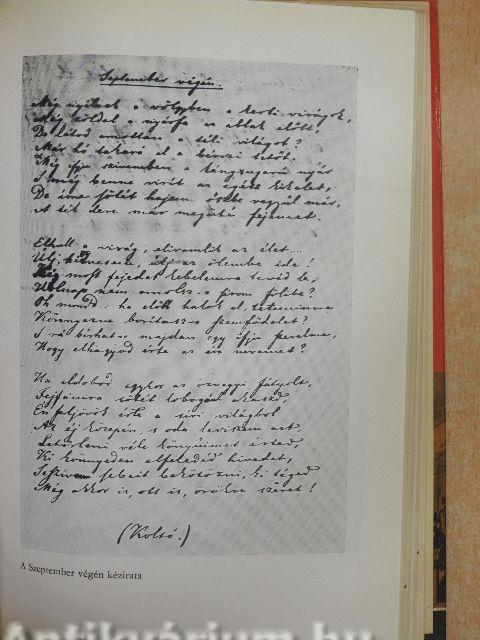 September végén.
Még nyílnak a völgyben a kerti virágok,
Még zöldel a nyárfa az ablak előtt,
De látod amottan a téli világot?
Már hó takará el a bérczi tetőt.
Még ifju szivemben a lángsugarú nyár
S még benne virít az egész kikelet,
De íme sötét hajam őszbe vegyűl már,
A tél dere már megüté fejemet.
Elhull a virág, eliramlik az élet...
Űlj, hitvesem, űlj az ölembe ide!
Ki most fejedet kebelemre tevéd le,
Holnap nem omolsz-e sirom fölibe?
Oh mondd: ha előbb halok el, tetemimre
Könnyezve borítasz-e szemfödelet?
S rá bírhat-e majdan egy ifju szerelme,
Hogy elhagyod érte az én nevemet?
Ha eldobod egykor az özvegyi fátyolt,
Fejfámra sötét lobogóul akaszd,
Én feljövök érte a síri világból
Az éj közepén, s oda leviszem azt,
Letörleni véle könyűimet érted,
Ki könnyeden elfeledéd hivedet,
S e szív sebeit bekötözni, ki téged
Még akkor is, ott is, örökre szeret!
(Koltó.)
A Szeptember végén kézirata
Antikvárium.hu